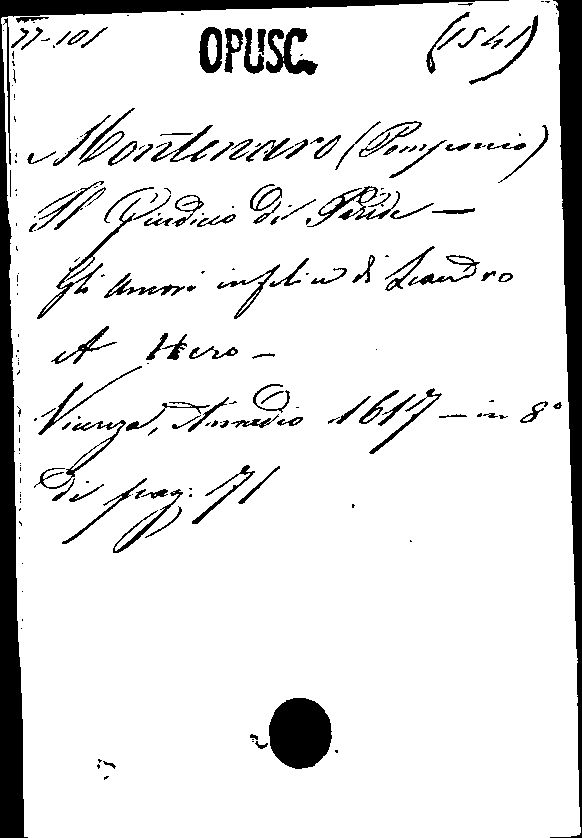 77-101 OPUSC. (1541)
Montenaro (Pomponio)
Il Giudicio di Paride —
Gli Amori infelici di Leandro
et Hero —
Vicenza, Amadio 1617 — in 8°
di pag. 71